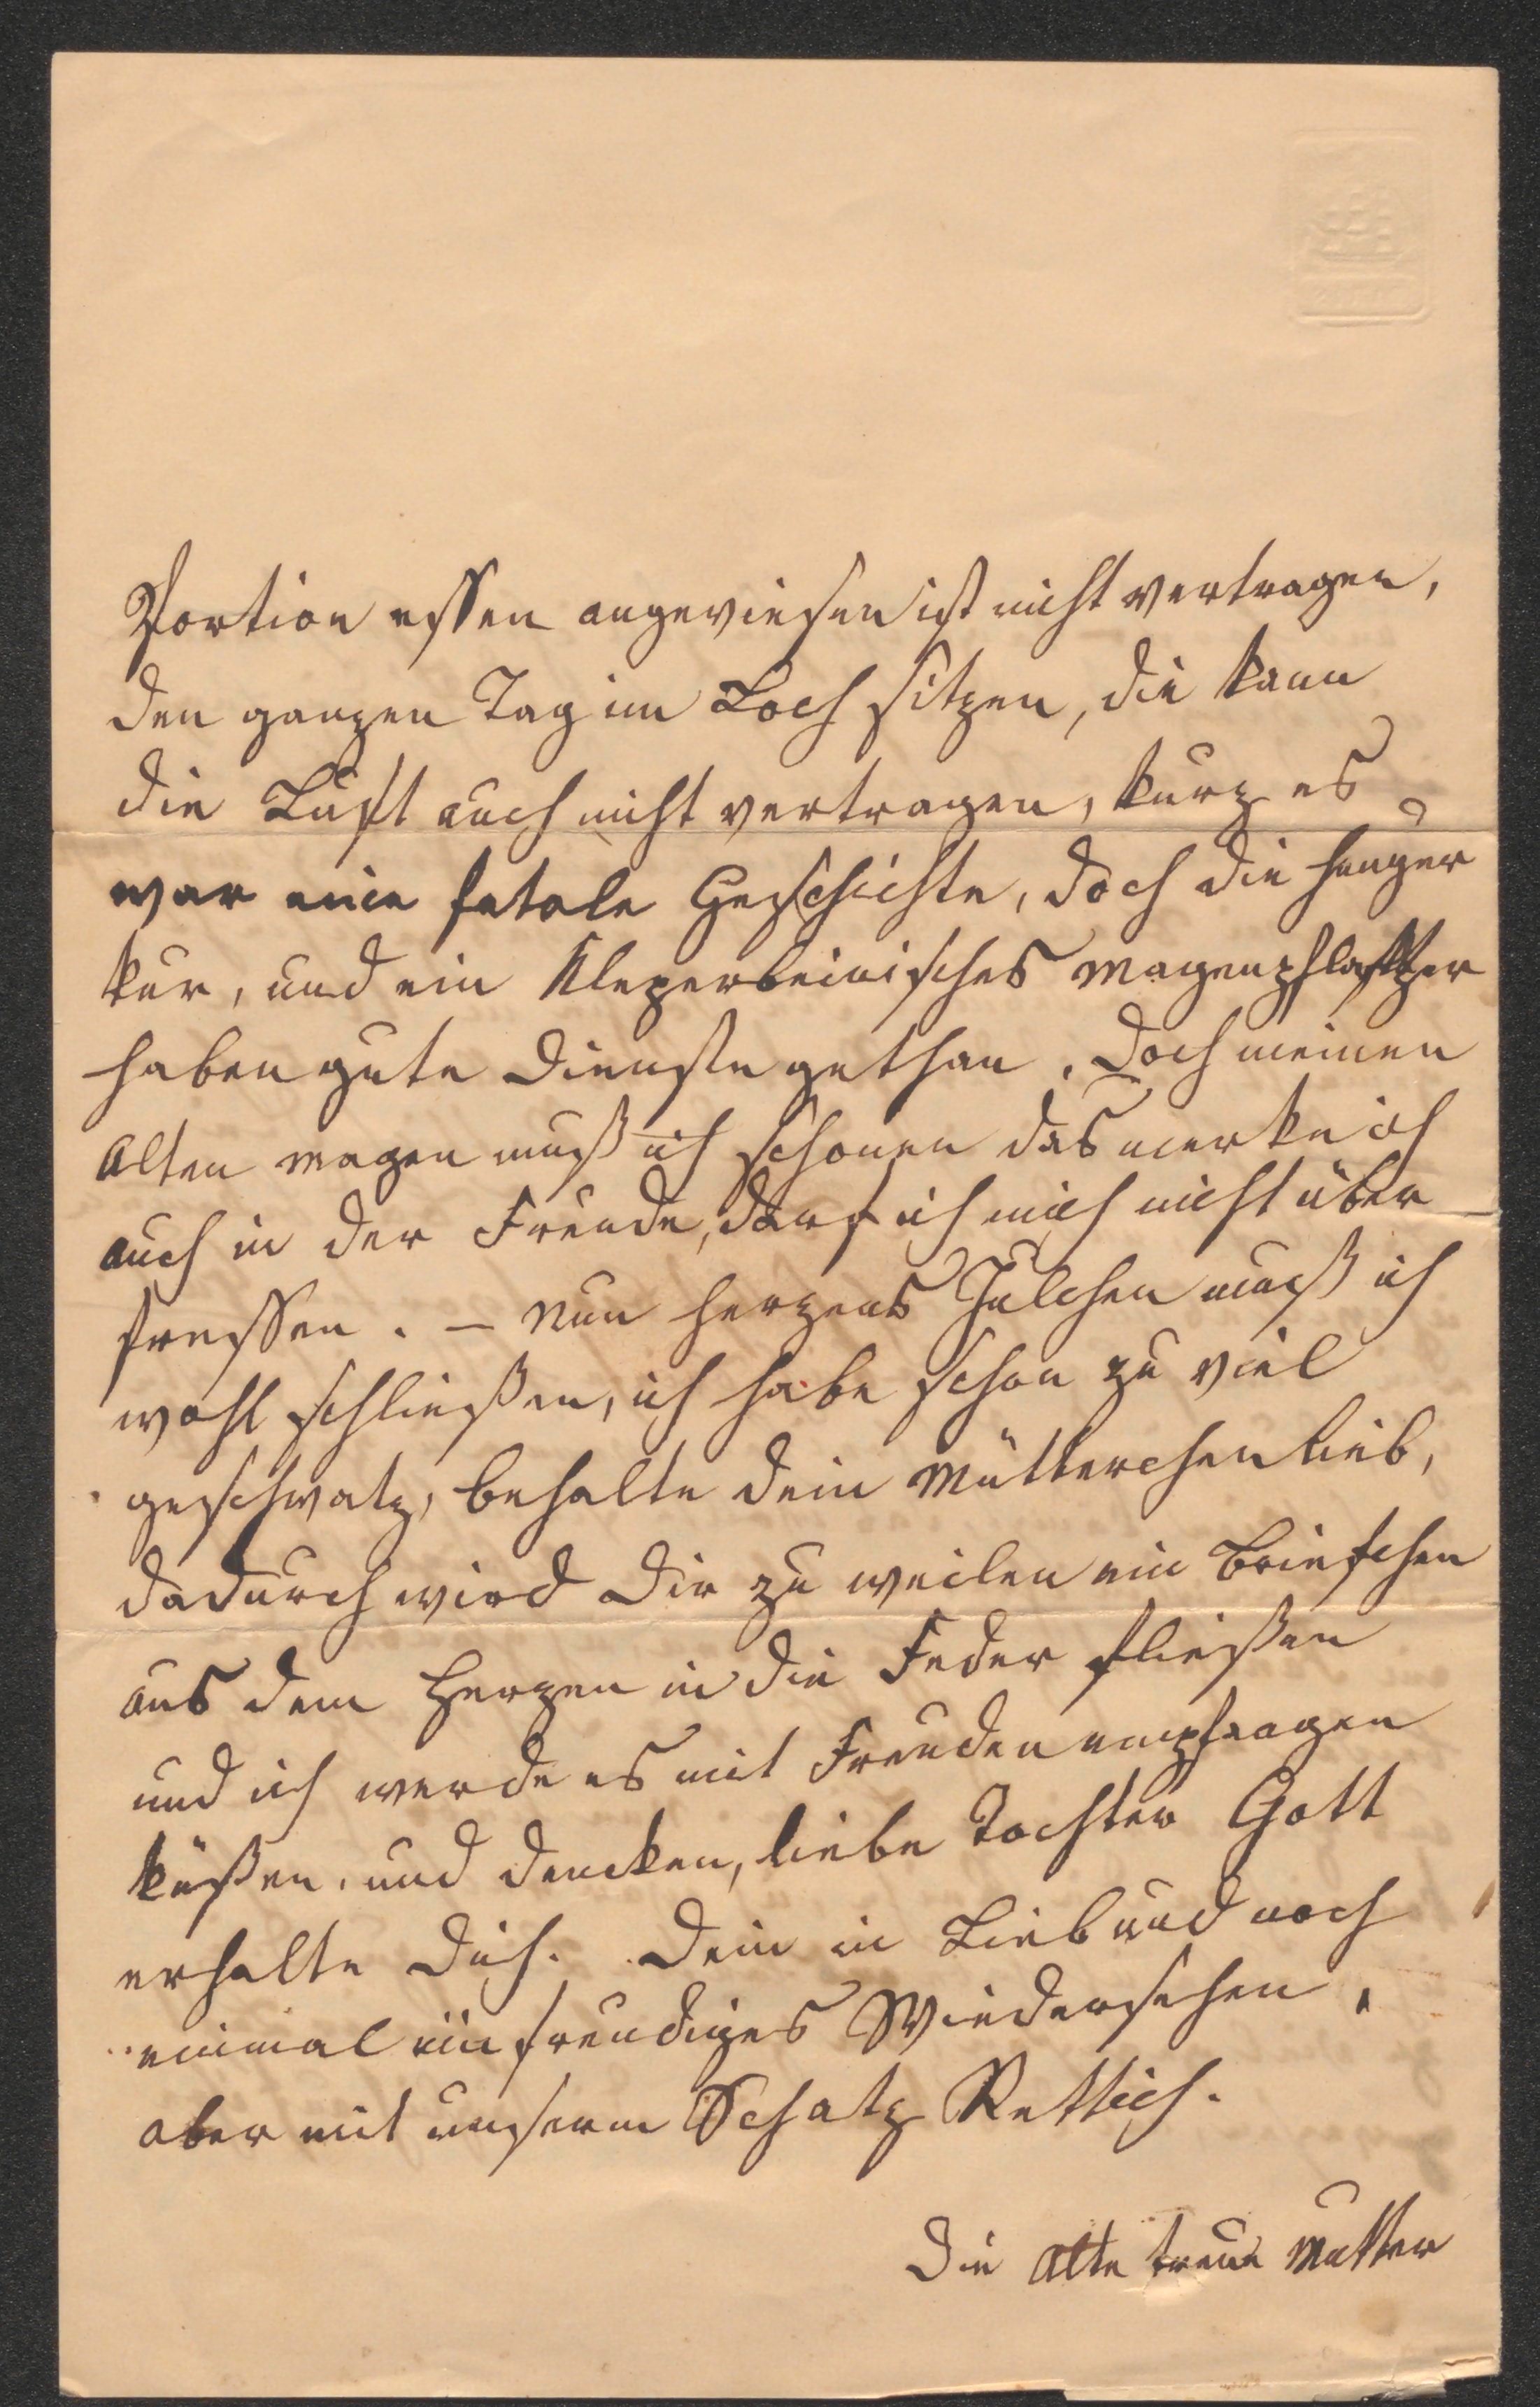 Portion essen angewiesen ist nicht vertragen,
den ganzen Tag im Loch sitzen, die kann
die Luft auch nicht vertragen, kurz es
war eine fatale Geschichte, doch die Hunger
kur, und ein Kleperbeinisches Magenpflaster
haben gute Dienste gethan. Doch meinen
Alten Magen muß ich schonen das merke ich
auch in der Freude, darf ich mich nicht über
fressen. – Nun herzens Julchen muß ich
wohl schließen, ich habe schon zu viel
geschwatz, behalte dein Mütterchen lieb,
dadurch wird Dir zu weilen ein Briefchen
aus dem Herzen in die Feder fließen
und ich werde es mit Freuden empfangen
küßen, und dencken, liebe Tochter Gott
erhalte Dich. Dein in Lieb und noch
einmal ein freudiges Wiedersehen,
aber mit unserm Schatz Rettich.
Die Alte treue Mutter